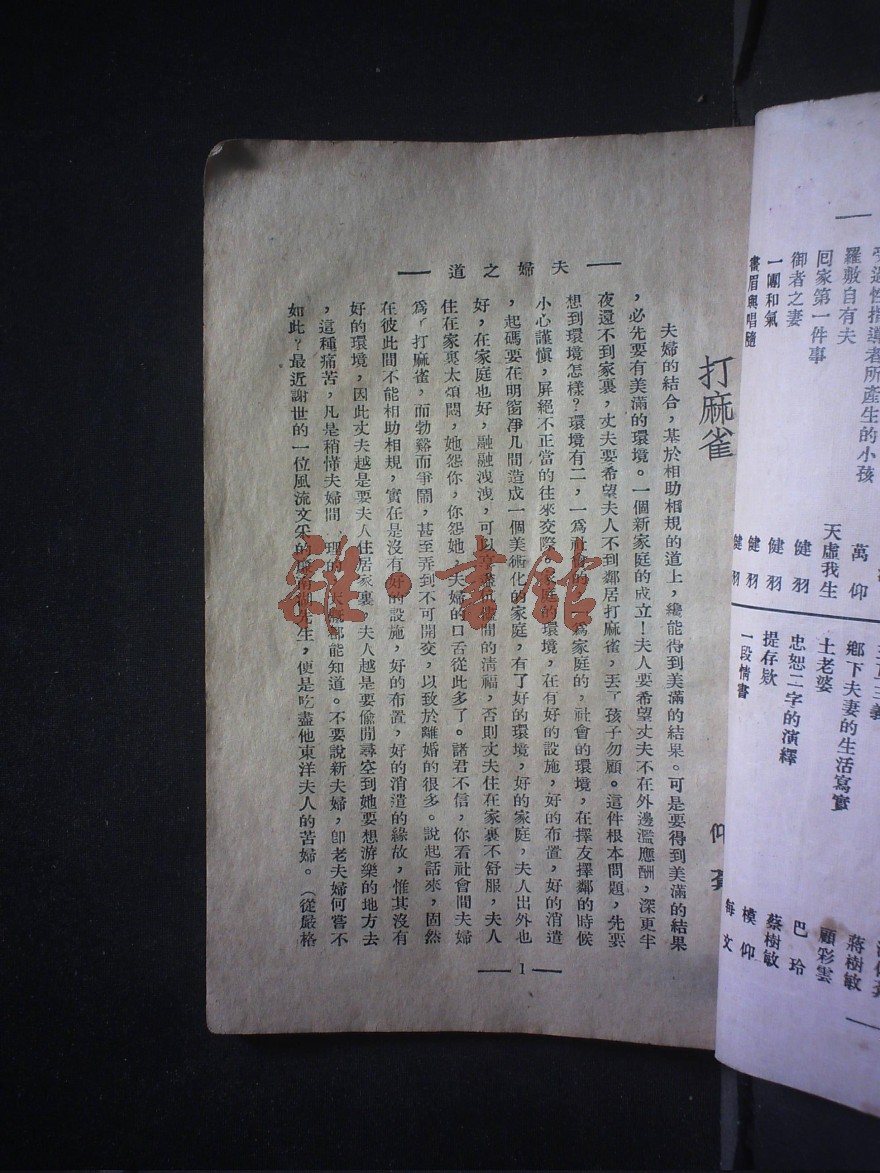 受過性指導者所產生的小孩
羅敷自有夫
囘家第一件事
御者之妻
一團和氣
畫眉與唱隨
萬仰
天虛我生
健羽
健羽
健羽
健羽
鄉下夫妻的生活寫實
土老婆
忠恕二字的演繹
提存欵
一段情書
蔣樹敏
顧彩雲
巴玲
蔡樹敏
模仰
每文
夫婦之道
打麻雀
夫婦的結合，基於相助相規的道上，纔能得到美滿的結果。可是要得到美滿的結果
，必先要有美滿的環境。一個新家庭的成立！夫人要希望丈夫不在外邊濫應酬，深更半
夜還不到家裏，丈夫要希望夫人不到鄰居打麻雀，丟了孩子勿顧。這件根本問題，先要
想到環境怎樣？環境有二，一爲社會的，一爲家庭的，社會的環境，在擇友擇鄰的時候
小心謹愼，屏絕不正當的往來交際，家庭的環境，在有好的設施，好的布置，好的消遣
，起碼要在明窗凈几間造成一個美術化的家庭，有了好的環境，好的家庭，夫人出外也
好，在家庭也好，融融洩洩，可以享盡間的淸福，否則丈夫住在家裏不舒服，夫人
住在家裏太煩悶，她怨你，你怨她，夫婦的口舌從此多了。諸君不信，你看社會間夫婦
爲了打麻雀，而勃谿而爭鬧，甚至弄到不可開交，以致於離婚的很多。說起話來，固然
在彼此間不能相助相規，實在是沒有好的設施，好的布置，好的消遣的緣故，惟其沒有
好的環境，因此丈夫越是要夫人住居家裏，夫人越是要偸閒尋空到她要想游樂的地方去
，這種痛苦，凡是稍懂夫婦間理的，都能知道。不要說新夫婦，卽老夫婦何嘗不
如此？最近謝世的一位風流文采的先生，便是吃盡他東洋夫人的苦婦。（從嚴格
1
雜·書館